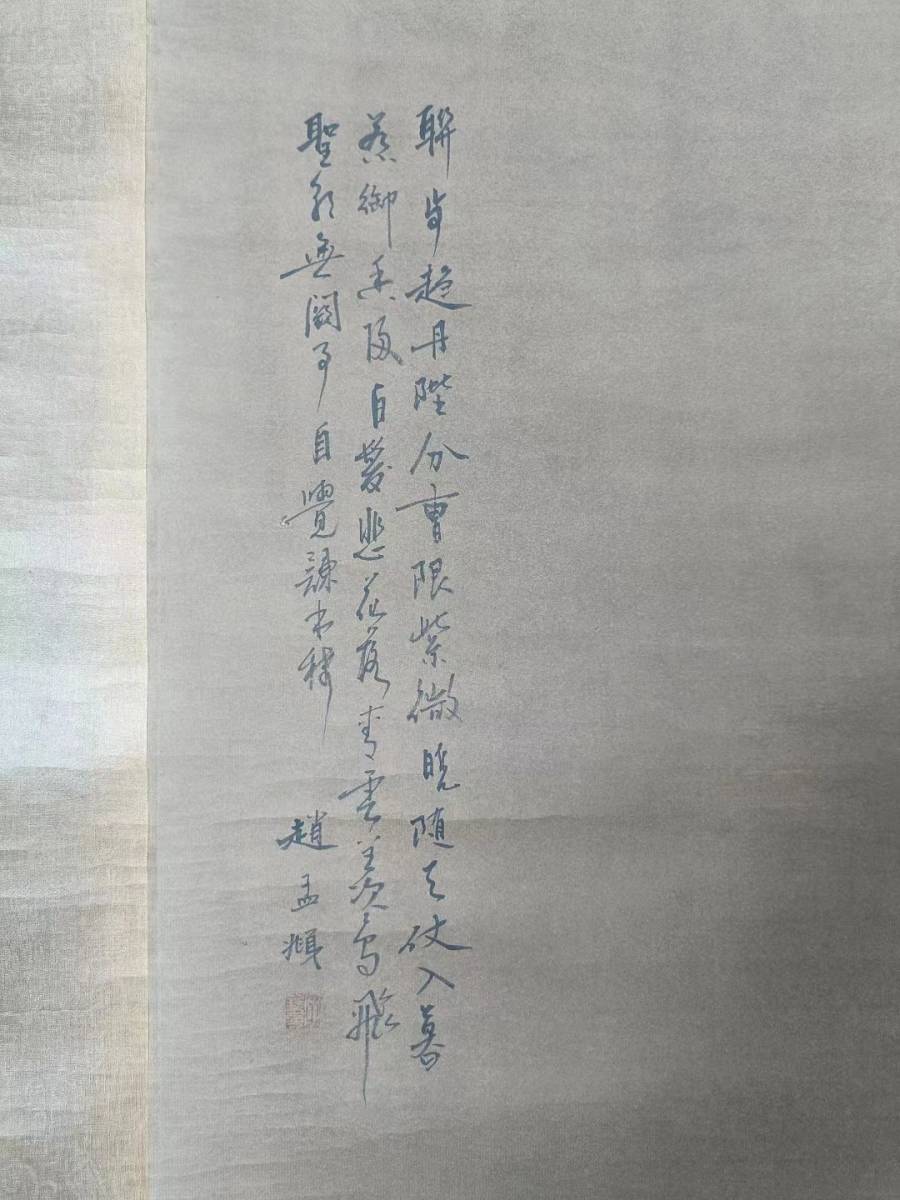 聯步趨丹陛分曹限紫微曉随天仗入暮
惹御香歸白髮悲花落青雲羨鳥飛
聖朝無闕事自覺諫書稀
趙孟頫